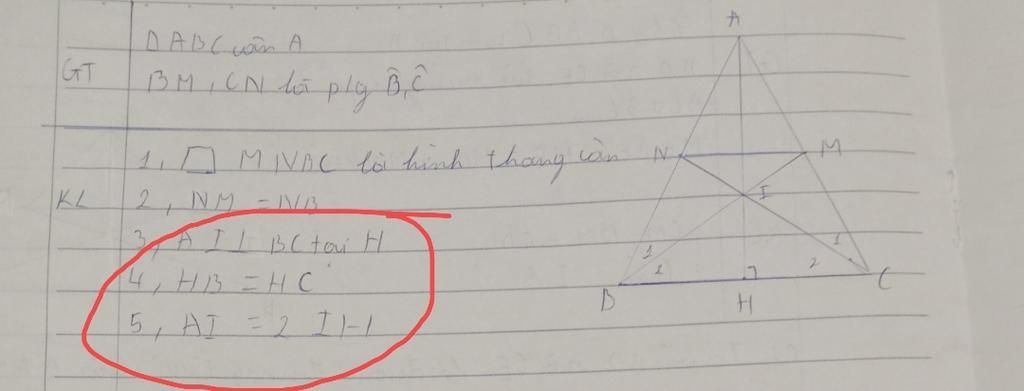 GT
ΔABC cân A
BM, CN là p/g B̂, Ĉ
KL
1, ▱ MNBC là hình thang cân
2, NM = NB
3, AI ⊥ BC tại H
4, HB = HC
5, AI = 2 IH
A
N
M
I
1
1
1
2
B
H
C